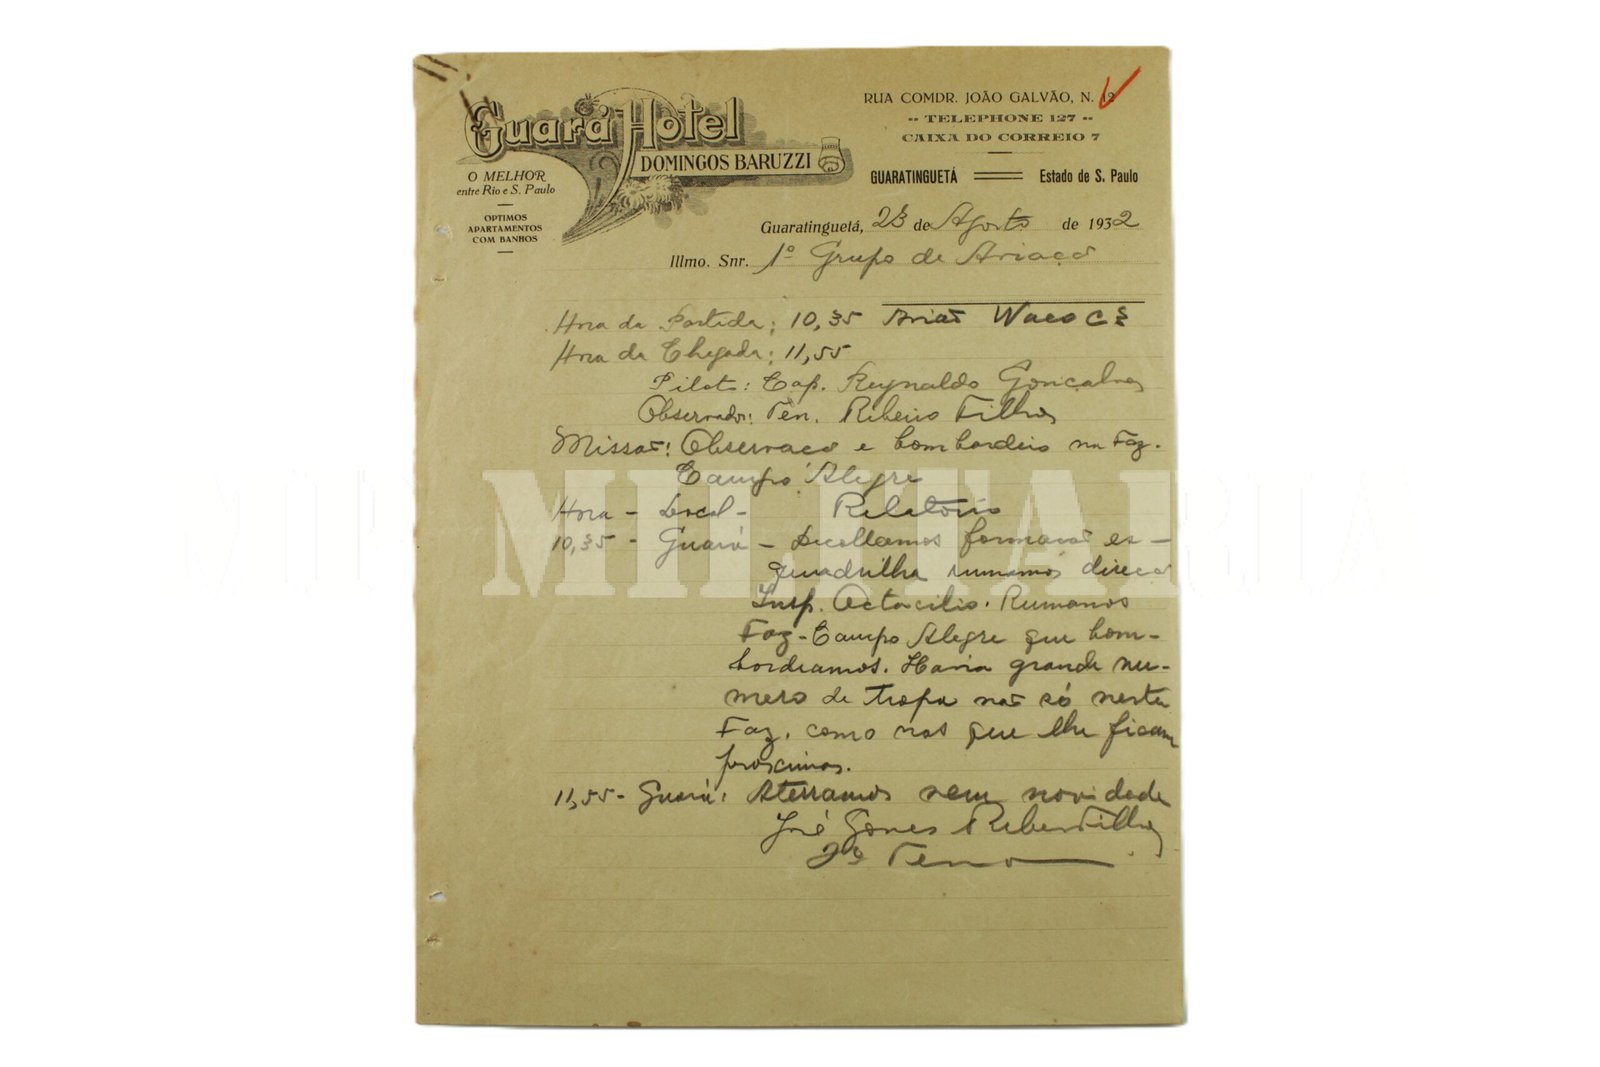 Guará Hotel
DOMINGOS BARUZZI
O MELHOR
entre Rio e S. Paulo
OPTIMOS
APARTAMENTOS
COM BANHOS
RUA COMDR. JOÃO GALVÃO, N. 12
-- TELEPHONE 127 --
CAIXA DO CORREIO 7
GUARATINGUETÁ Estado de S. Paulo
Guaratinguetá, 23 de Agosto de 1932
Illmo. Snr. 1º Grupo de Aviação
Hora da Partida: 10,35 Avião Waco
Hora da Chegada: 11,55
Piloto: Cap. Reynaldo Gonçalves
Observador: Ten. Ribeiro Filho
Missão: Observação e bombardeio na Faz.
Campo Alegre
Hora - Local - Relatorio
10,35 - Guará - Decollamos formação es-
quadrilha rumamos direção
Insp. Octacilio. Rumamos
Faz - Campo Alegre que bom-
bordeamos. Havia grande nu-
mero de tropa não só nesta
Faz. como nas que lhe ficam
proximas.
11,55 - Guará: Aterramos sem novidade
José Gomes Ribeiro Filho
2º Ten
MILITARIA